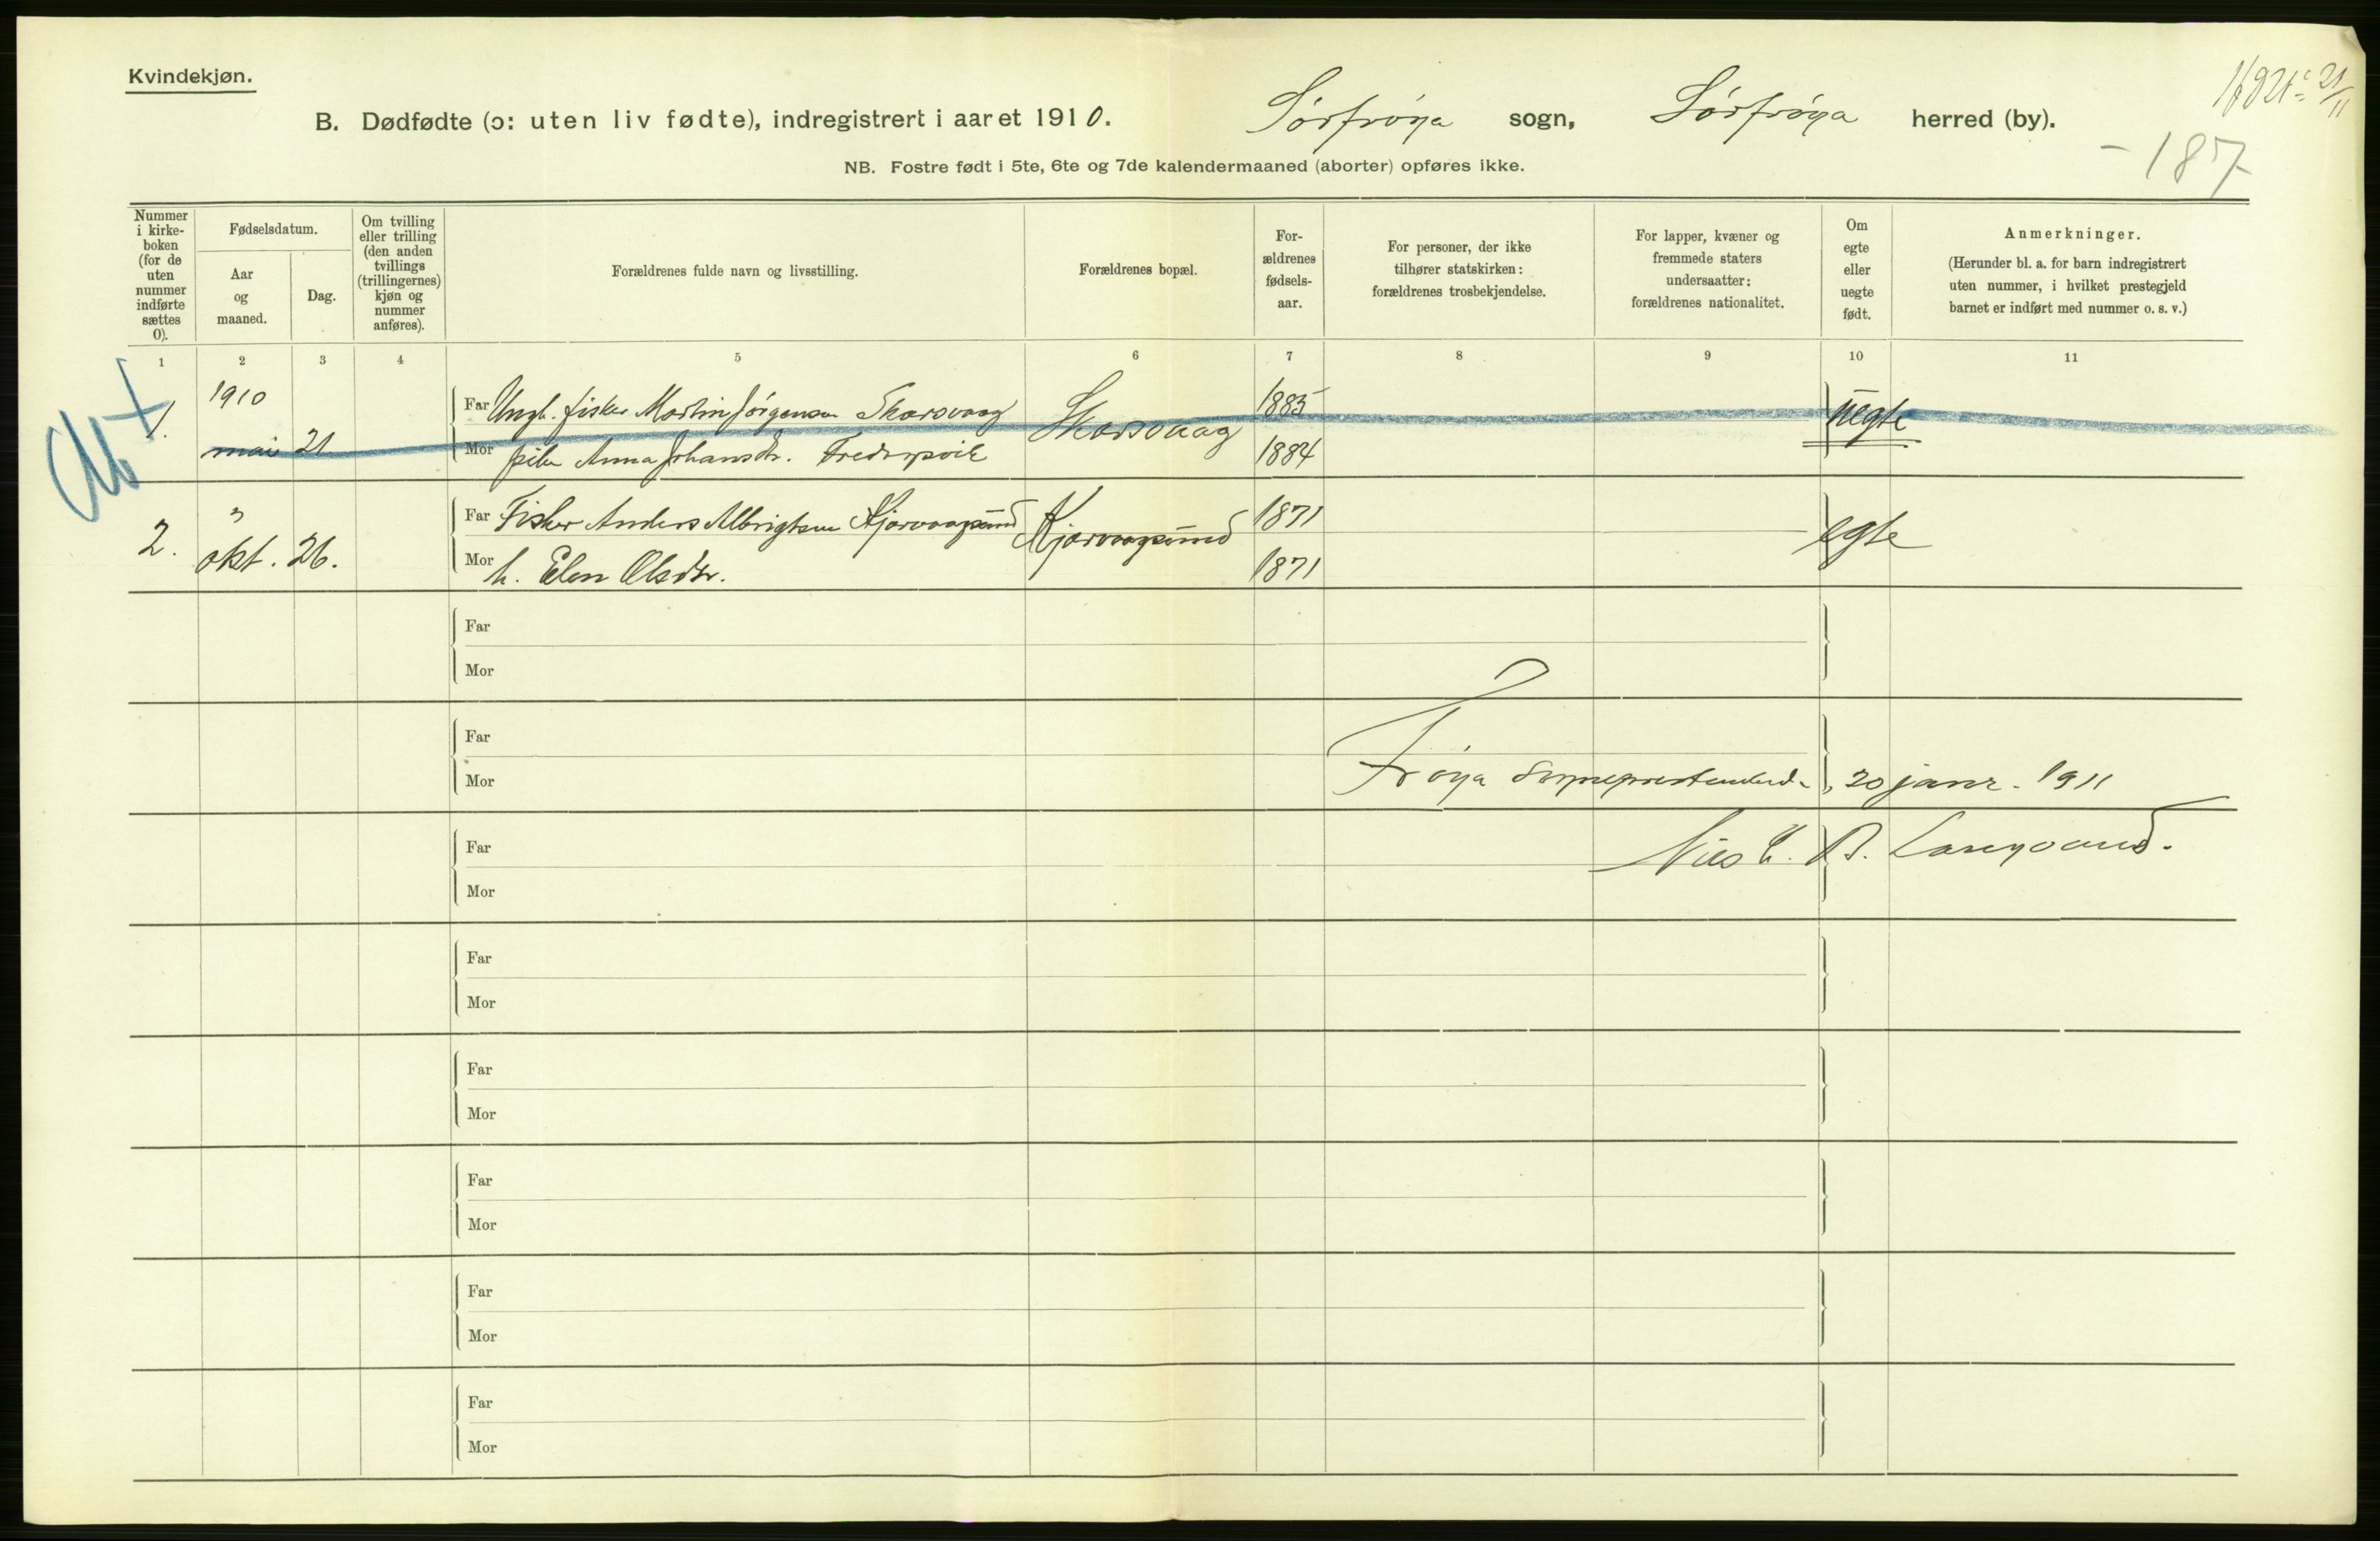 Kvindekjøn.
B. Dødfødte (ɔ: uten liv fødte), indregistrert i aaret 1910. Sørfrøya sogn, Sørfrøya herred (by).
21/11
- 187
NB. Fostre født i 5te, 6te og 7de kalendermaaned (aborter) opføres ikke.
Nummer
i kirke-
boken
(for de
uten
nummer
indførte
sættes
0).
Fødselsdatum.
Aar
og
maaned.
Dag.
Om tvilling
eller trilling
(den anden
tvillings
(trillingernes)
kjøn og
nummer
anføres).
Forældrenes fulde navn og livsstilling.
Forældrenes bopæl.
For-
ældrenes
fødsels-
aar.
For personer, der ikke
tilhører statskirken:
forældrenes trosbekjendelse.
For lapper, kvæner og
fremmede staters
undersaatter:
forældrenes nationalitet.
Om
egte
eller
uegte
født.
Anmerkninger.
(Herunder bl. a. for barn indregistrert
uten nummer, i hvilket prestegjeld
barnet er indført med nummer o. s. v.)
1 2 3 4 5 6 7 8 9 10 11
1. 1910 mai 21
Far Ungk. fisker Martin Jørgensen Skarsvaag Skarsvaag 1885 uegte
Mor pike Anna Johansdr. Fredrikpvik 1884
2. " okt. 26.
Far Fisker Anders Albrigtsen Kjørvaagsund Kjørvaagsund 1871 egte
Mor h. Elen Olsdtr. 1871
Far
Mor
Far
Mor
Frøya sogneprestembed, 20 janr. 1911
Far
Nils
Mor
Far
Mor
Far
Mor
Far
Mor
Far
Mor
Far
Mor